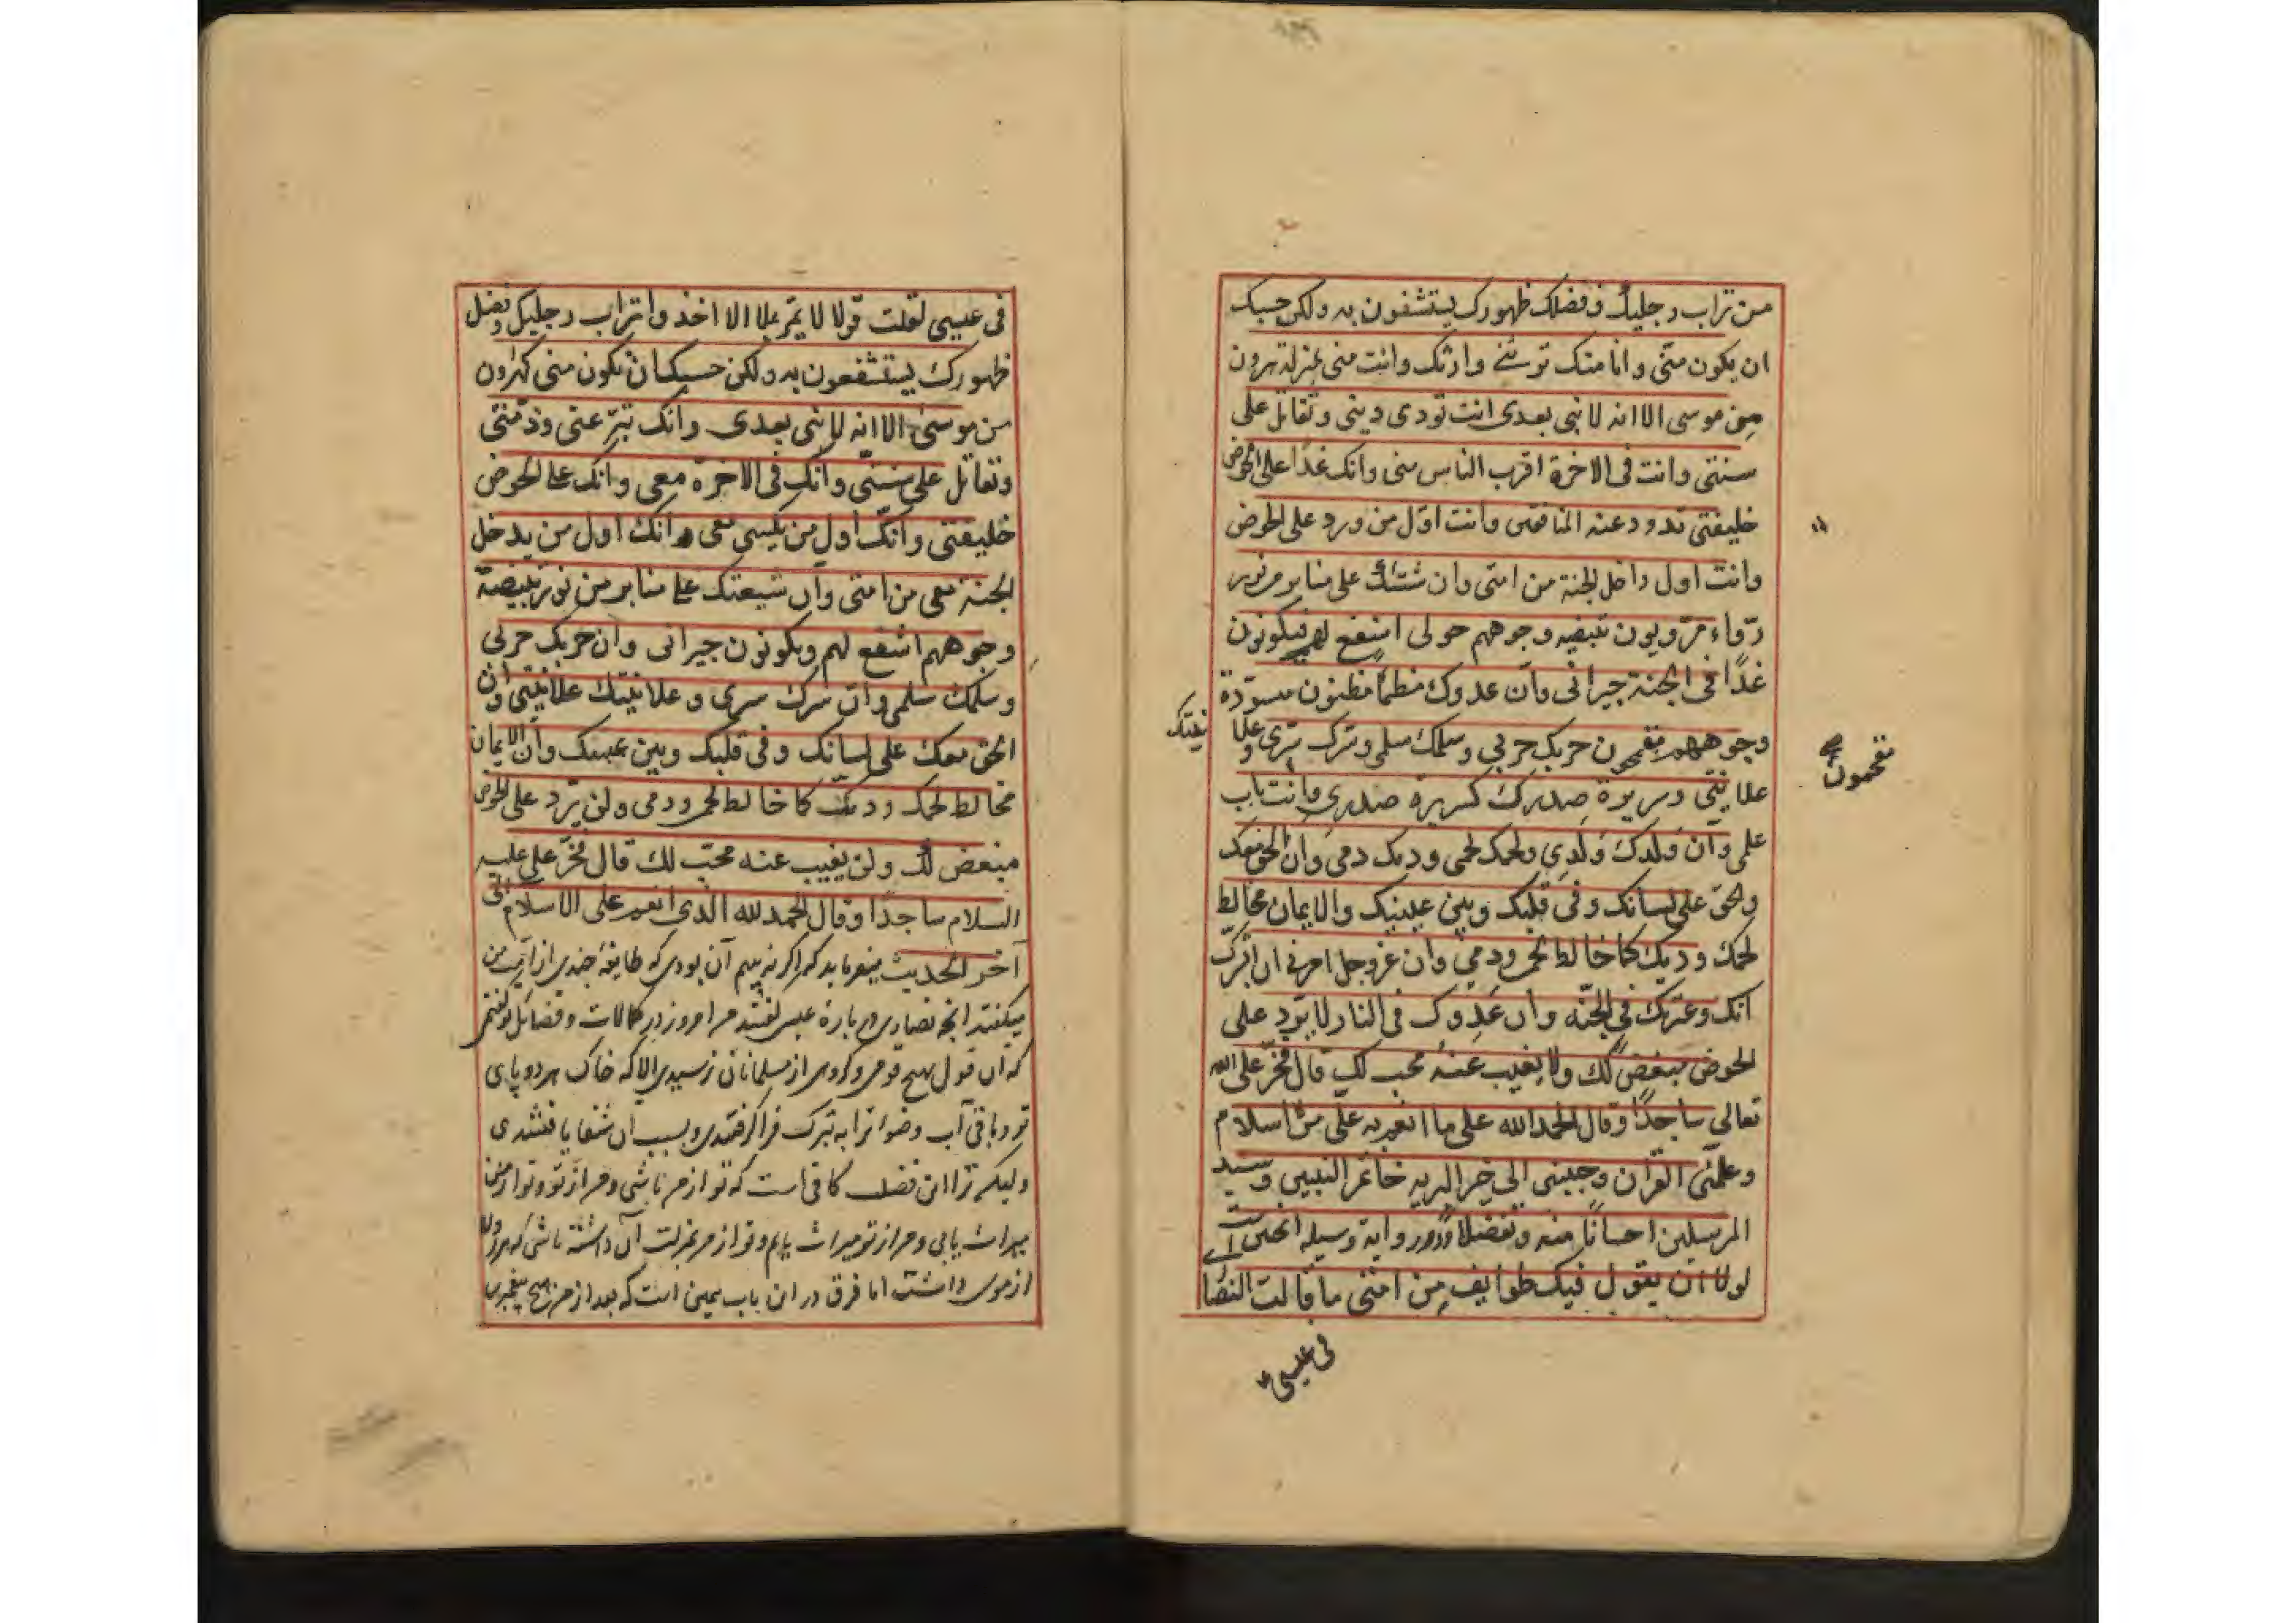 من تراب رجلیک و فضلک ظهورک یستشفون به ولکن حسبک
ان یکون منی وانا منک ترثنی وارثک وانت منی بمنزلة هرون
من موسی الا انه لا نبی بعدی انت تودی دینی وتقاتل علی
سنتی وانت فی الاخرة اقرب الناس منی وانک غدًا علی الحوض
خلیفتی تذود عنه المنافقین وانت اوّل من ورد علی الحوض
وانت اول داخل الجنة من امتی وان شیعتک علی منابر من نور
روّاء مرویون مبیضه وجوههم حولی اشفع لهم فیکونون
غدًا فی الجنة جیرانی وان عدوک مظمأ مظمئون مسوّدة
وجوههم مقمحون حربک حربی وسلمک سلمی وسرک سری وعلا
نیتک
علانیتی وسریرة صدرک کسریرة صدری وانت باب
علمی وان ولدک ولدی ولحمک لحمی ودمک دمی وان الحق معک
والحق علی لسانک وفی قلبک وبین عینیک والایمان مخالط
لحمک ودمک کما خالط لحمی ودمی وان عز وجل امرنی ان ابشرک
انک وعترتک فی الجنّة وان عدوک فی النار لا یرد علی
الحوض مبغض لک ولا یغیب عنه محب لک قال فخرّ علی لله
تعالی ساجدًا وقال الحمد لله علی ما انعم به علی من اسلام
وعلمنی القران وحببنی الی خیر البریه خاتم النبیین وسید
المرسلین احسانًا منه وتفضلا ودر روایة وسیله
لولا ان یقول فیک طوایف من امتی ما قالت النصا
مقمحون
فی عیسی
فی عیسی لقلت قولا لا تمر بملا الا اخذوا تراب رجلیک وفضل
ظهورک یستشفعون به ولکن حسبک ان تکون منی کهرون
من موسی الا انه لا نبی بعدی وانک تبرّ عنی وذمتی
وتقاتل علی سنتی وانک فی الاخرة معی وانک علی الحوض
خلیفتی وانک اول من یکسی معی وانک اول من یدخل
الجنة معی من امتی وان شیعتک علی منابر من نور مبیضة
وجوههم اشفع لهم ویکونون جیرانی وان حربک حربی
وسلمک سلمی وان سرک سری وعلانیتک علانیتی وان
الحق معک علی لسانک وفی قلبک وبین عینیک وان الایمان
مخالط لحمک ودمک کما خالط لحمی ودمی ولن یرد علی الحوض
مبغض لک ولن یغیب عنه محبّ لک قال فخرّ علی علیه
السلام ساجدًا وقال الحمد لله الذی انعم علی الاسلام الی
آخر الحدیث میفرماید که اگر نه بیم آن بودی که طایفهٔ چندی از امت من
میگفتند آنچه نصاری در بارهٔ عیسی گفتند من امروز در کمالات و فضائل تو گفتمی
که آن قول بهیچ قومی و گروهی از مسلمانان نرسیدی الا که خاک هر دو پای
تو و باقی آب وضو ترا به تبرک فراگرفتندی و بسبب آن شفا یافتندی
ولیکن ترا این فضل کافی است که تو از من باشی و من از تو و تو از من
میراث یابی و من از تو میراث یابم و تو از من بمنزلت آن داشته باشی که هرون
از موسی داشت اما فرق در این باب همین است که بعد از من هیچ پیغمبری